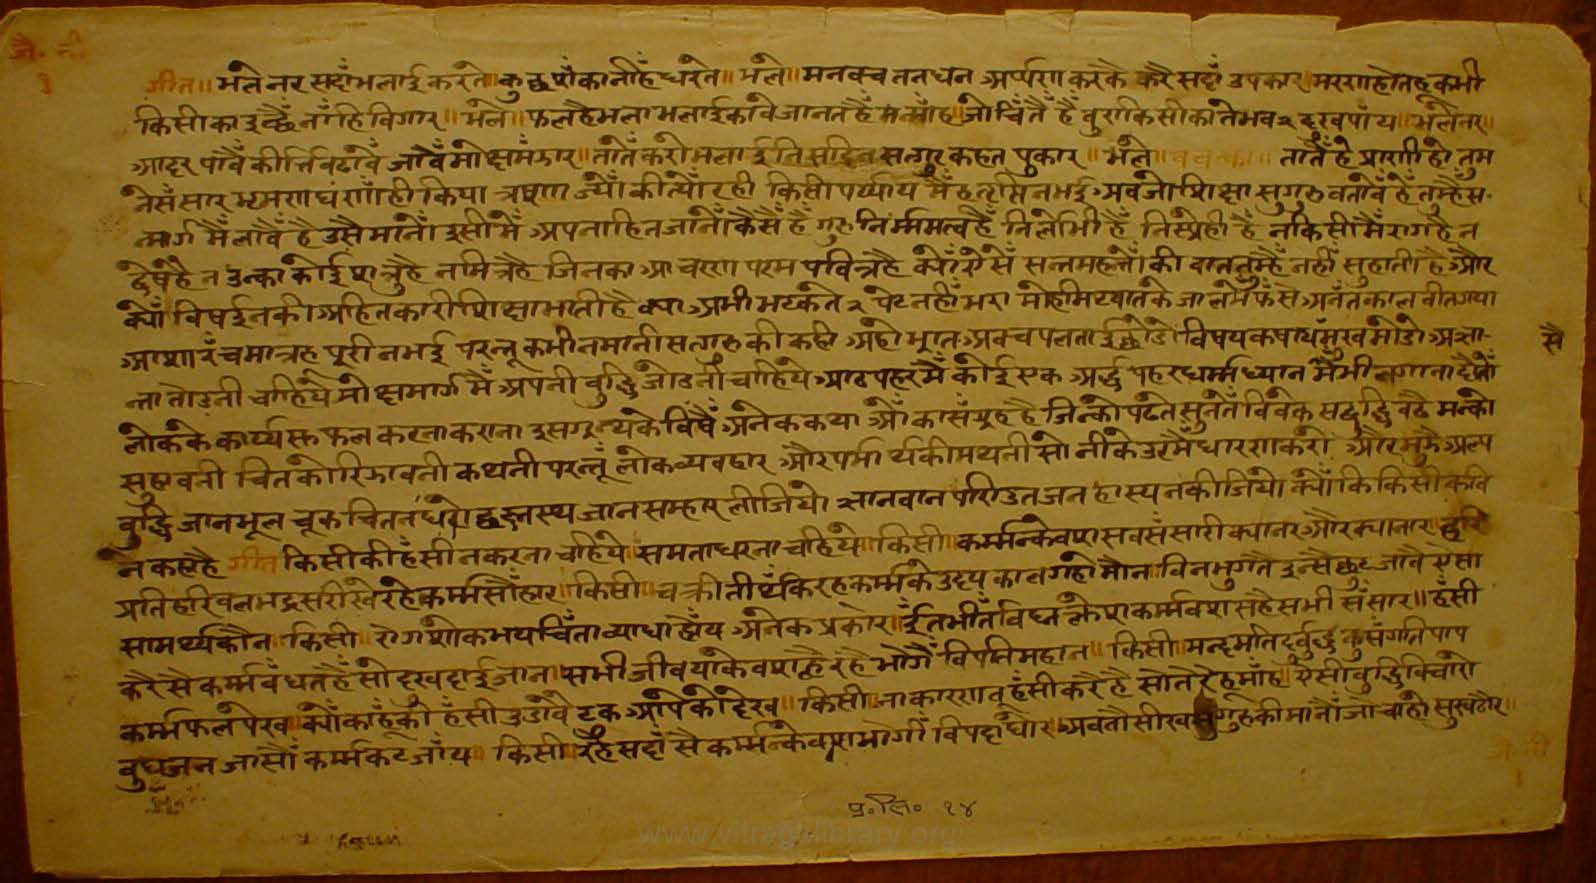 जै. नी
१
गीत॥ भले नर सदाँ भलाई करते॥ कुछ शंका नाँहिं धरते॥ भले॥ मन वच तन धन अर्प्पण करकै करै सदाँ उपकार॥ मरण होत हू कभी
किसी का इच्छैँ नाँहि विगार॥ भले॥ फल है भला भलाई का वे जानत हैँ मन माँह॥ जो चिंतैँ हैँ वुरा किसी का ते भव २ दुख पाँय॥ भले नर॥
आदर पावैँ कीर्त्ति वढावैँ जावैँ मोक्ष मंझार॥ तातैँ करो भलाई निसदिन सत्गुर कहत पुकार॥ भले॥ वचनका॥ तातैँ हे प्राणी हो तुम
नेँ संसार भ्रमण घंणाँ ही किया त्रष्णा ज्योँ की त्योँ रही किसी पर्य्याय मैँ त्रप्ति न भई अव जो शिक्षा सुगुरु वतावैँ हैँ तुम्हैँ स-
न्मार्ग मैँ लावैँ है उसै मानोँ इसी मेँ अपना हित जानोँ कैसे हैँ गुरु निर्म्ममत्व हैँ निर्लोभी हैँ निस्प्रेही हैँ न किसी मैँ राग है न
द्वेष है न उन्का कोई शत्रु है न मित्र है जिनका आचरण परम पवित्र है क्योँ ऐसे सन्त महन्तोँ की वात तुम्हैँ नहीँ सुहाती है और
क्योँ विषईन की अहितकारी शिक्षा भाती है क्या अभी भटकते २ पेट नहीँ भरा मोही मिथ्यात के जाल मेँ फंसे अनंत काल वीत गया
आशा रंच मात्र हू पूरी न भई परन्तू कभी न मानी सत्गुरु की कही अहो भ्रात अव चपलताई छोडो विषय कषाय सैँ मुख मोडो अज्ञा-
सै
नता तोडनी चाहिये मोक्षमार्ग मैँ अपनी वुद्धि जोडनी चाहिये आठ पहर मैँ कोई एक अर्द्ध पहर धर्म्मध्यान मैँ भी लगाना दोनोँ
लोक के कार्य्य सफल करना कराना इस ग्रन्थ के विषैँ अनेक कथाओँ का संग्रह है जिन्को पढते सुनतेँ विवेक सद्वुद्धि वढै मन्को
सुहावनी चित को रिझावनी कथनी परन्तूँ लोक व्यवहार और पर्मार्थ की मथनी सो नीके उर मैँ धारण करो और मुझै अल्प
वुद्धि जान भूल चूक चित न धरो छद्मस्थ जान सम्हार लीजियो ज्ञानवान पण्डित जन हास्य न कीजियो क्योँ कि किसी कवि
नेँ कहा है गीत किसी की हँसी न करना चहिये॥ समता धरना चहिये॥ किसी॥ कर्म्मन्के वश सव संसारी क्या नर और क्या नार॥ हरि
प्रतिहरि वलभद्र सरीखे रहे कर्म्म सौँ हार॥ किसी॥ चक्री तीर्थंकर हू कर्म्म के उदय काल गहो मौन॥ विन भुगतै इन्सै छुट जावै ऐसा
सामर्थ्य कौन॥ किसी॥ रोग शोक भय चिँता व्याधा अनेक प्रकार॥ ईत भीत विघ्न क्लेश कर्म्म वश सहै सभी संसार॥ हंसी
करै सै कर्म्म वंधत हैँ सो दुखदाई जान॥ सभी जीव या के वश ह्वै रहै भोगैँ विपति महान॥ किसी॥ मन्दमति दुर्वुद्धि कुसंगति पाप
कर्म्म फल पेख॥ क्योँ काहू की हंसी उडावै टुक आपे को देख॥ किसी॥ ना कारण तू हंसी करै है सो तेरेहु माँह॥ ऐसी वुद्धि विचारो
वुधजन जासौँ कर्म्म कट जाँय॥ किसी॥ रहै सदाँ सै कर्म्मन्के वश भोगीँ विपदा घोर॥ अव तौ सीख सुगुरु की मानौँ जो चाहो सुख ठौर॥
जै. नी
१
प्र॰ लि॰ १४
www.vitragilibrary.org